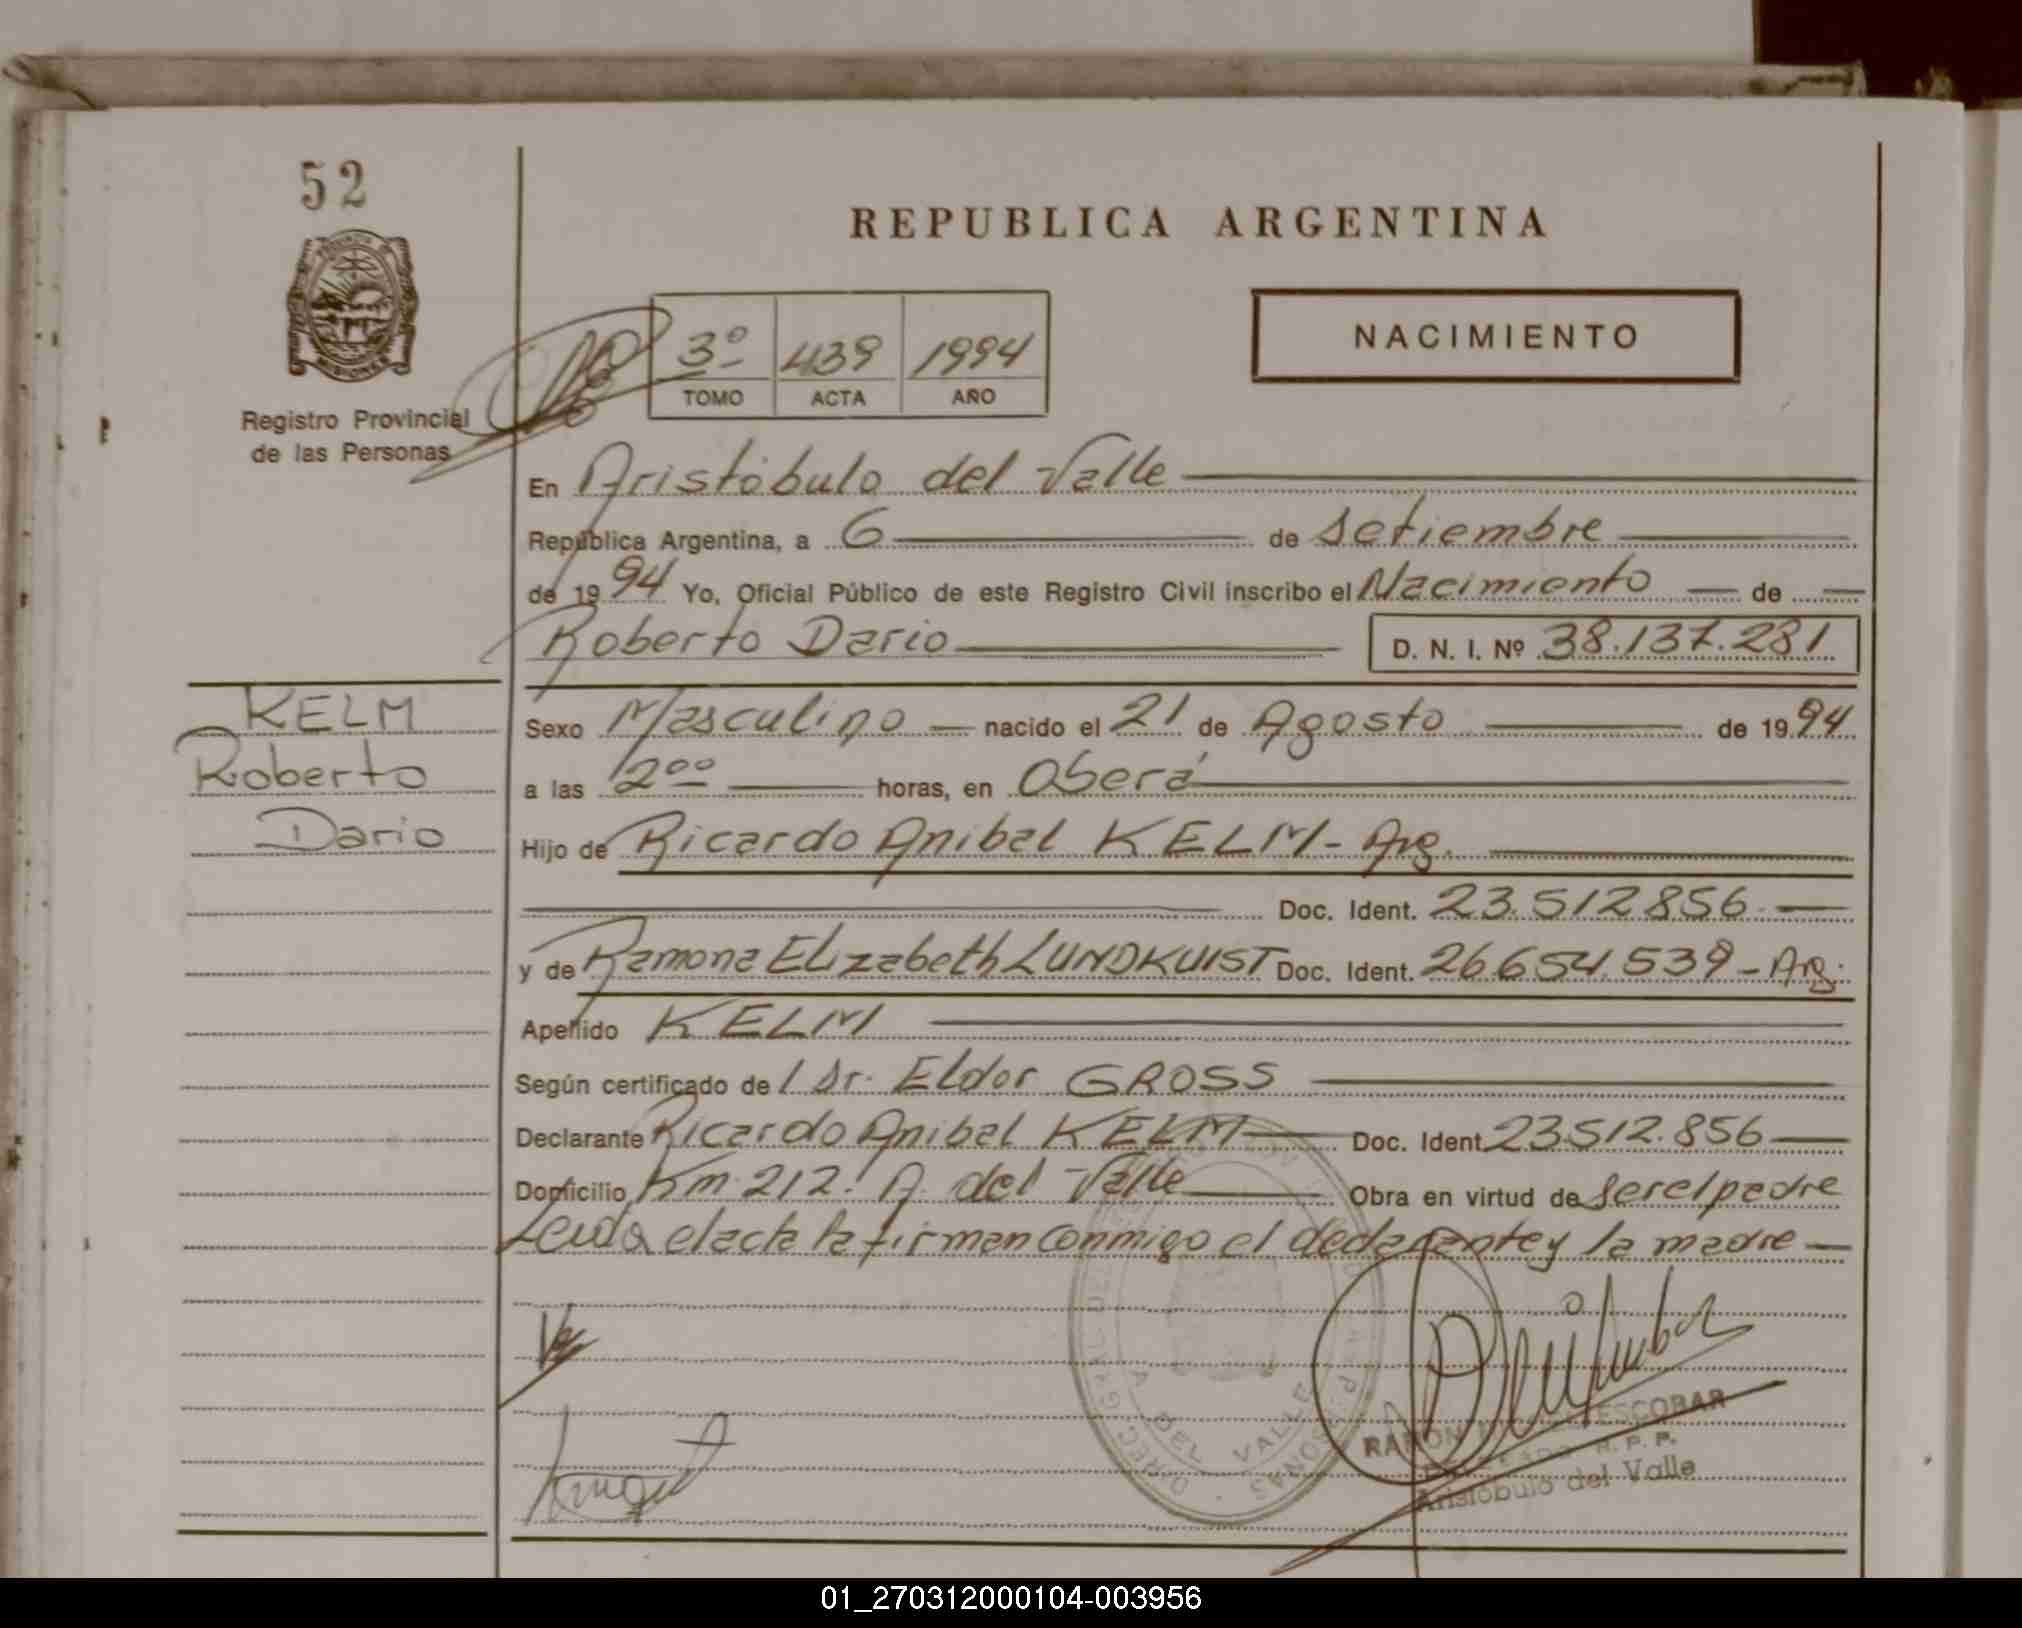 52
REPUBLICA ARGENTINA
Registro Provincial
de las Personas
3º 439 1994
TOMO ACTA AÑO
NACIMIENTO
En Aristóbulo del Valle
República Argentina, a 6 de setiembre
de 19 94 Yo, Oficial Público de este Registro Civil inscribo el Nacimiento de
Roberto Dario D. N. I. Nº 38.137.281
KELM
Roberto
Dario
Sexo Masculino nacido el 21 de Agosto de 19 94
a las 2⁰⁰ horas, en Oberá
Hijo de Ricardo Anibal KELM - Arg.
Doc. Ident. 23.512856
y de Ramona Elizabeth LUNDKUIST Doc. Ident. 26654.539 - Arg.
Apellido KELM
Según certificado de l Dr. Eldor GROSS
Declarante Ricardo Anibal KELM Doc. Ident. 23512.856
Domicilio Km 212. A. del Valle Obra en virtud de ser el padre
Leida el acta la firman conmigo el declarante y la madre
RAMON ESCOBAR
R. P. P.
Aristóbulo del Valle
DEL VALLE
01_270312000104-003956